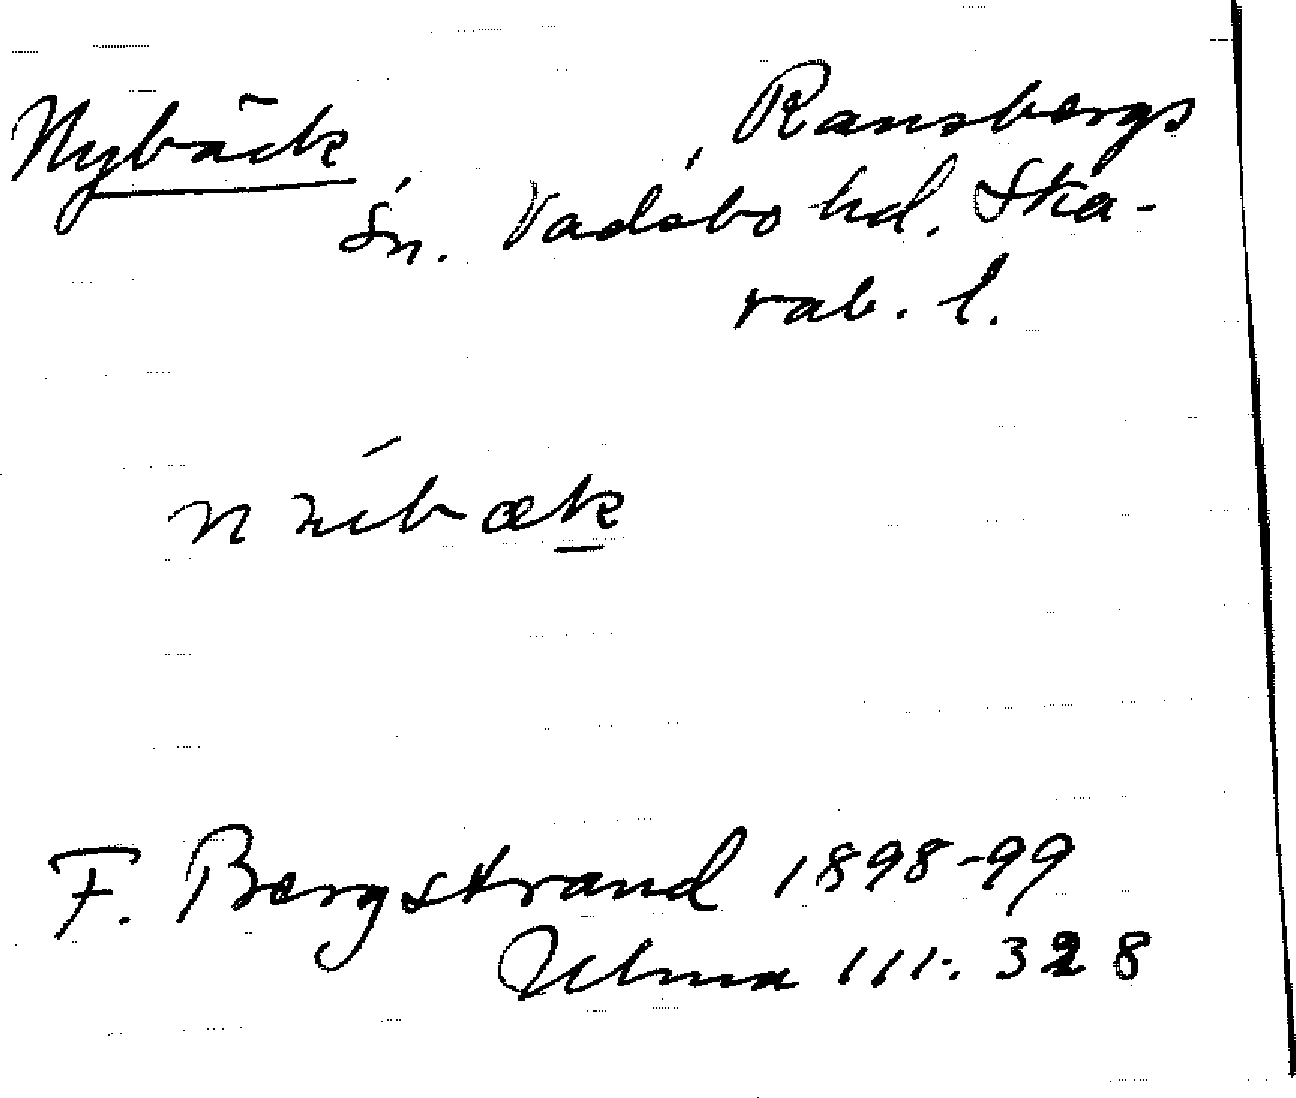 Nybäck , Ransbergs
Sn. Vadsbo hd. Ska-
rab. l.
F. Bergstrand 1898-99
Ulma 111. 328